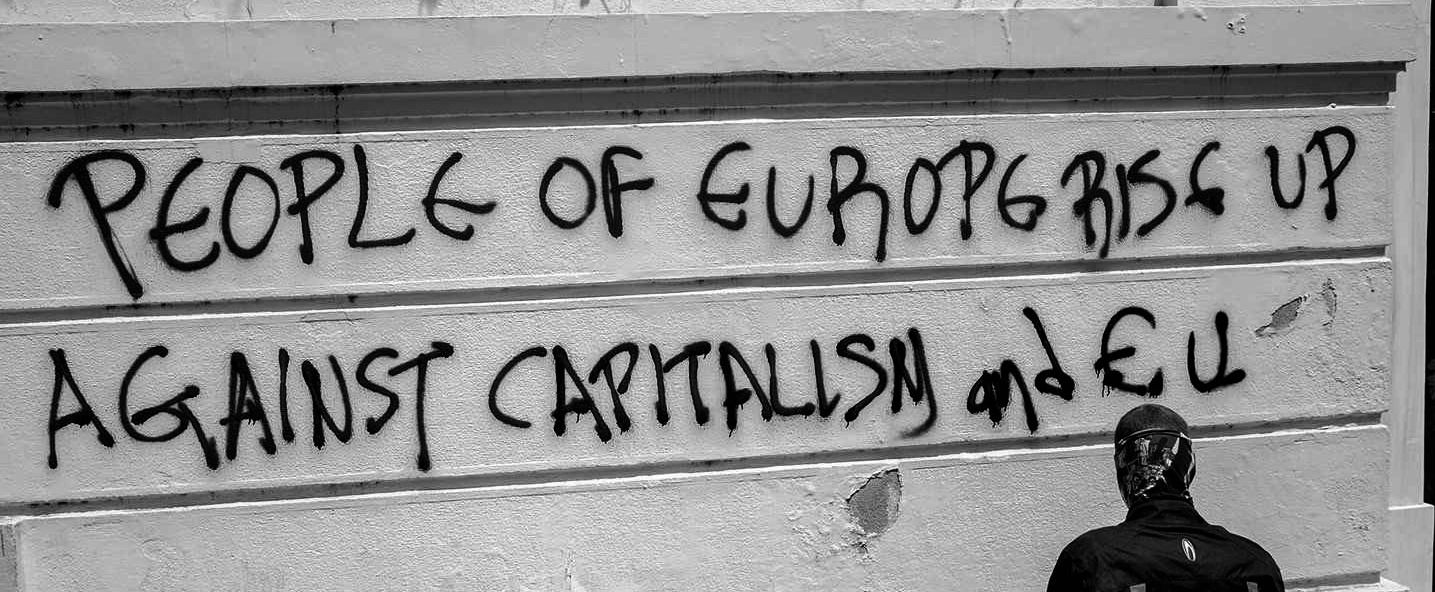 PEOPLE OF EUROPE RISE UP
AGAINST CAPITALISM and EU